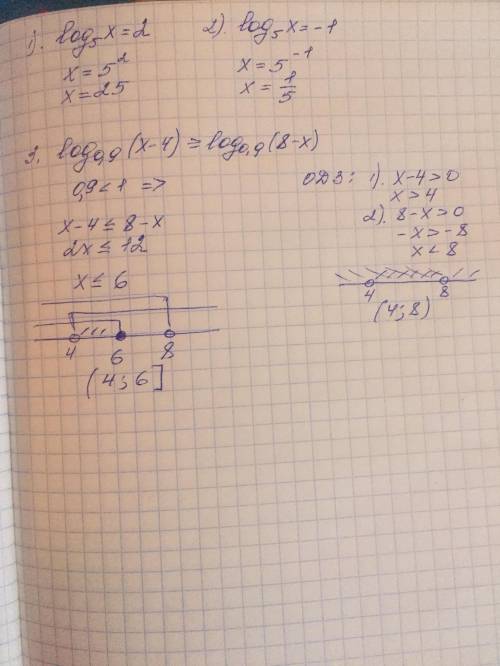 1). log₅x=2
x=5²
x=25
2). log₅x=-1
x=5⁻¹
x=1/5
3. log₀,₉(x-4)≥log₀,₉(8-x)
0,9<1 =>
x-4≤8-x
2x≤12
x≤6
4 6 8
(4;6]
ОДЗ: 1). x-4>0
x>4
2). 8-x>0
-x>-8
x<8
4 8
(4;8)